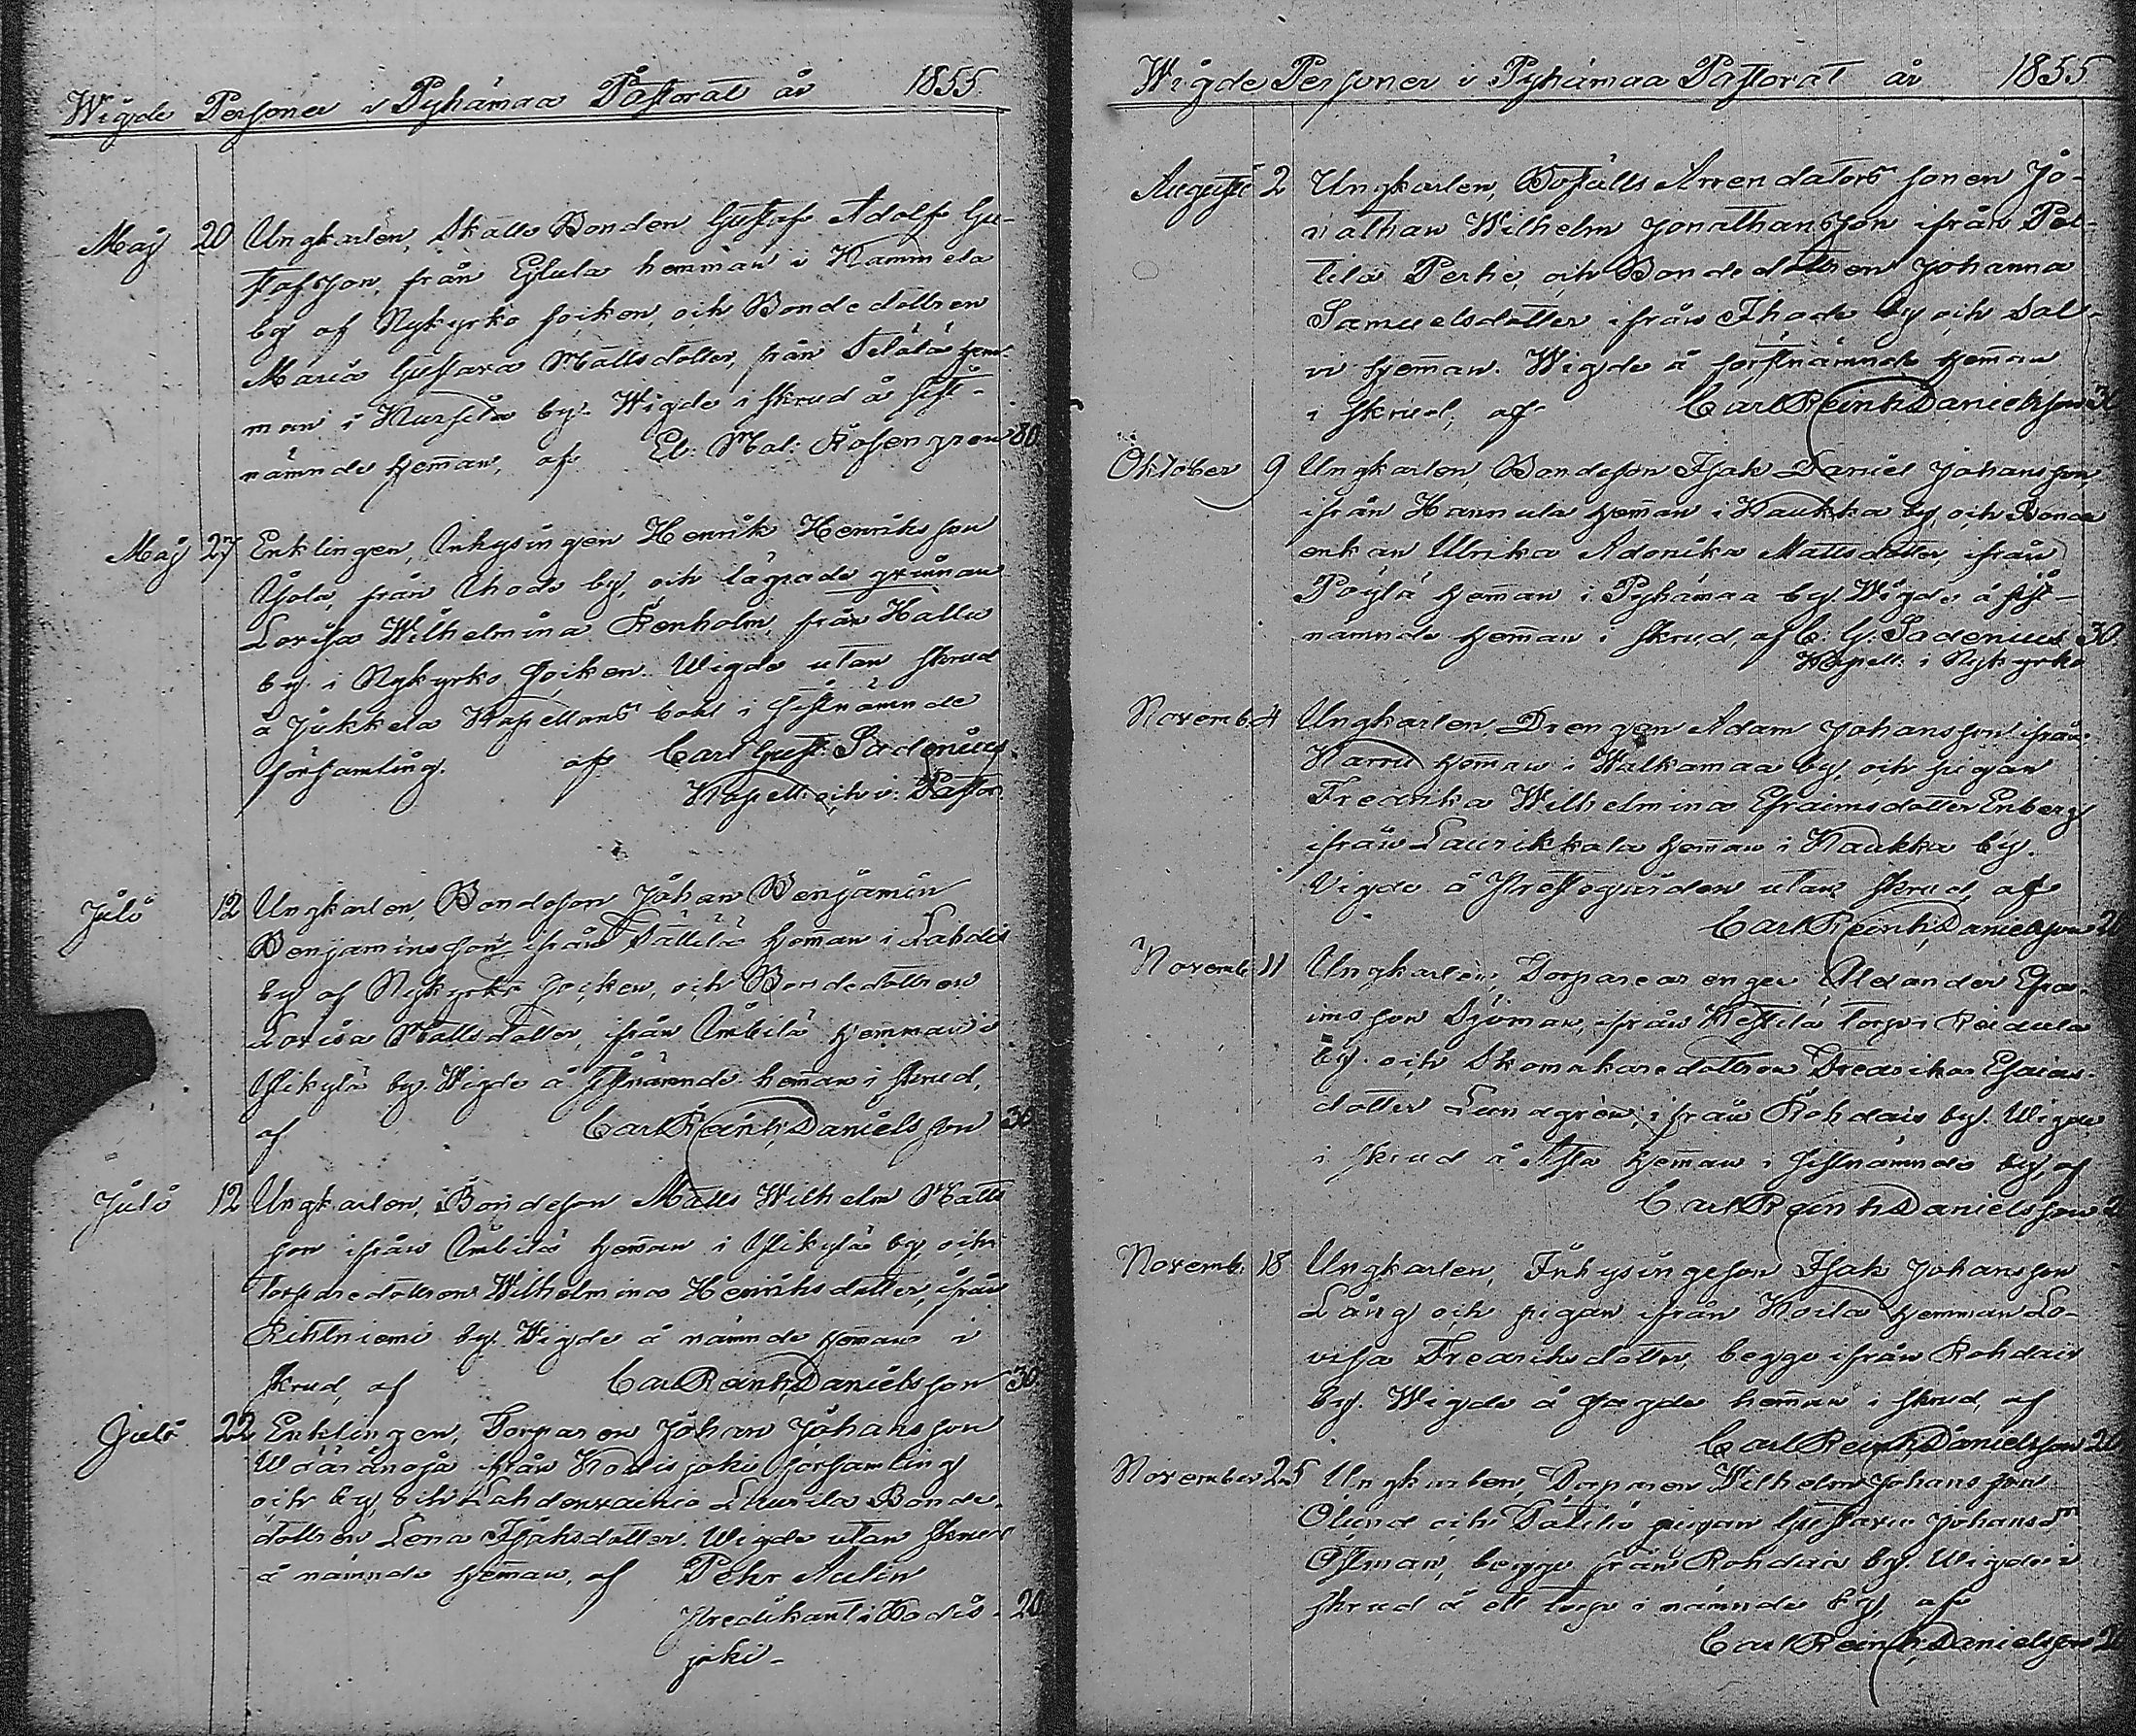 Wigde Personer i Pyhämaa Pastorat år 1855.
Maj 20 Ungkarlen, Skatte Bonden Gustaf Adolf Gu-
stafsson, från Eskula hemman i Kammela
by af Nykyrko socken, och Bondedottren
Maria Gustava Mattsdotter, från Seläla hem-
man i Kursila by. Wigde i skrud å sist-
nämnde hem̄an, af El: Mal: Rosengren 30
Maj 27 Enklingen, Inhysingen Henrik Henriksson
från Ihode by, och lägrade qvin̄an
Lovisa Wilhelmina Renholm, från Hallu
by i Nykyrko Socken. Wigde utan skrud
å Jukkela Kapellans bohl i sistnämnde
församling. af Carl Gust: Sadenius.
Kapell: och v: Pastor.
Juli 12 Ungkarlen, Bondeson Johan Benjamin
Benjaminsson ifrån Tättilä hem̄an i Lahdis
by af Nykyrko socken, och Bondedottren
Lovisa Mattsdotter, ifrån Ämbilä hemman i
Ylikylä by. Wigde å sistnämnde hem̄an i skrud,
af Carl Reinh, Danielsson 30
Juli 12 Ungkarlen, Bondeson Matts Wilhelm Matts
son ifrån Ämbilä hem̄an i Ylikylä by, och
Torparedottren Wilhelmina Henriksdotter, ifrån
Rihtniemi by. Wigde å nämnde hem̄an i
skrud, af Carl Reinh, Danielsson 30
Juli 22 Enklingen, Torparen Johan Johansson
ifrån Kodisjoki församling
och by, och Lahdenvainio Laurila Bonde-
dottren Lena Isaksdotter. Wigde utan skrud
å nämnde hem̄an, af Pehr Aulin
Predikant i Kodis- 20
joki-
Wigde Personer i Pyhämaa Pastorat år 1855
Augusti 2 Ungkarlen, Boställs Arrendators sonen Jo-
nathan Wilhelm Jonathansson ifrån Pal-
tila Perhe, och Bondedottren Johanna
Samuelsdotter ifrån Ihode by och Sal-
vi hem̄an. Wigde å förstnämnde hem̄an
i skrud, af Carl Reinh, Danielsson 30
Oktober 9 Ungkarlen, Bondeson Isak Daniel Johansson,
ifrån Hannula hem̄an i Kaukka by, och Bonde
enkan Ulrika Adonika Mattsdotter, ifrån
Pöylä hem̄an i Pyhämaa by. Wigde å sist-
nämnde hem̄an i skrud, af C: G: Sadenius 30
Kapell: i Nykyrko
Novemb: 4 Ungkarlen, Drengen Adam Johansson ifrån
Karru hem̄an i Walkamaa by, och pigan
Fredrika Wilhelmina Efraimsdotter Enberg
ifrån Laurikkala hem̄an i Kaukka by.
Vigde å Prestegården utan skrud, af
Carl Reinh, Danielsson 20
Novemb: 11 Ungkarlen, Torparedrengen Alexander Efra-
imsson Sjöman, ifrån Kestilä torp i Reidula
by, och Skomakaredottren Fredrika Esaias-
dotter Lundgrén, ifrån Rohdais by. Wigde
i skrud å hem̄an i sistnämnde by, af
Carl Reinh Danielsson 2
Novemb: 18 Ungkarlen, Inhysingeson Isak Johansson
Lång och pigan ifrån Koila hemman Lo-
visa Fredriksdotter, begge ifrån Rohdais
by. Wigde å sagde hem̄an i skrud, af
Carl Reinh, Danielsson 20
November 25 Ungkarlen, Torparen Wilhelm Johansson
Ölund och pigan Gustava Johansdr
Östman, begge från Rohdais by. Wigde i
skrud å ett torp i nämnde by, af
Carl Reinh, Danielsson 2